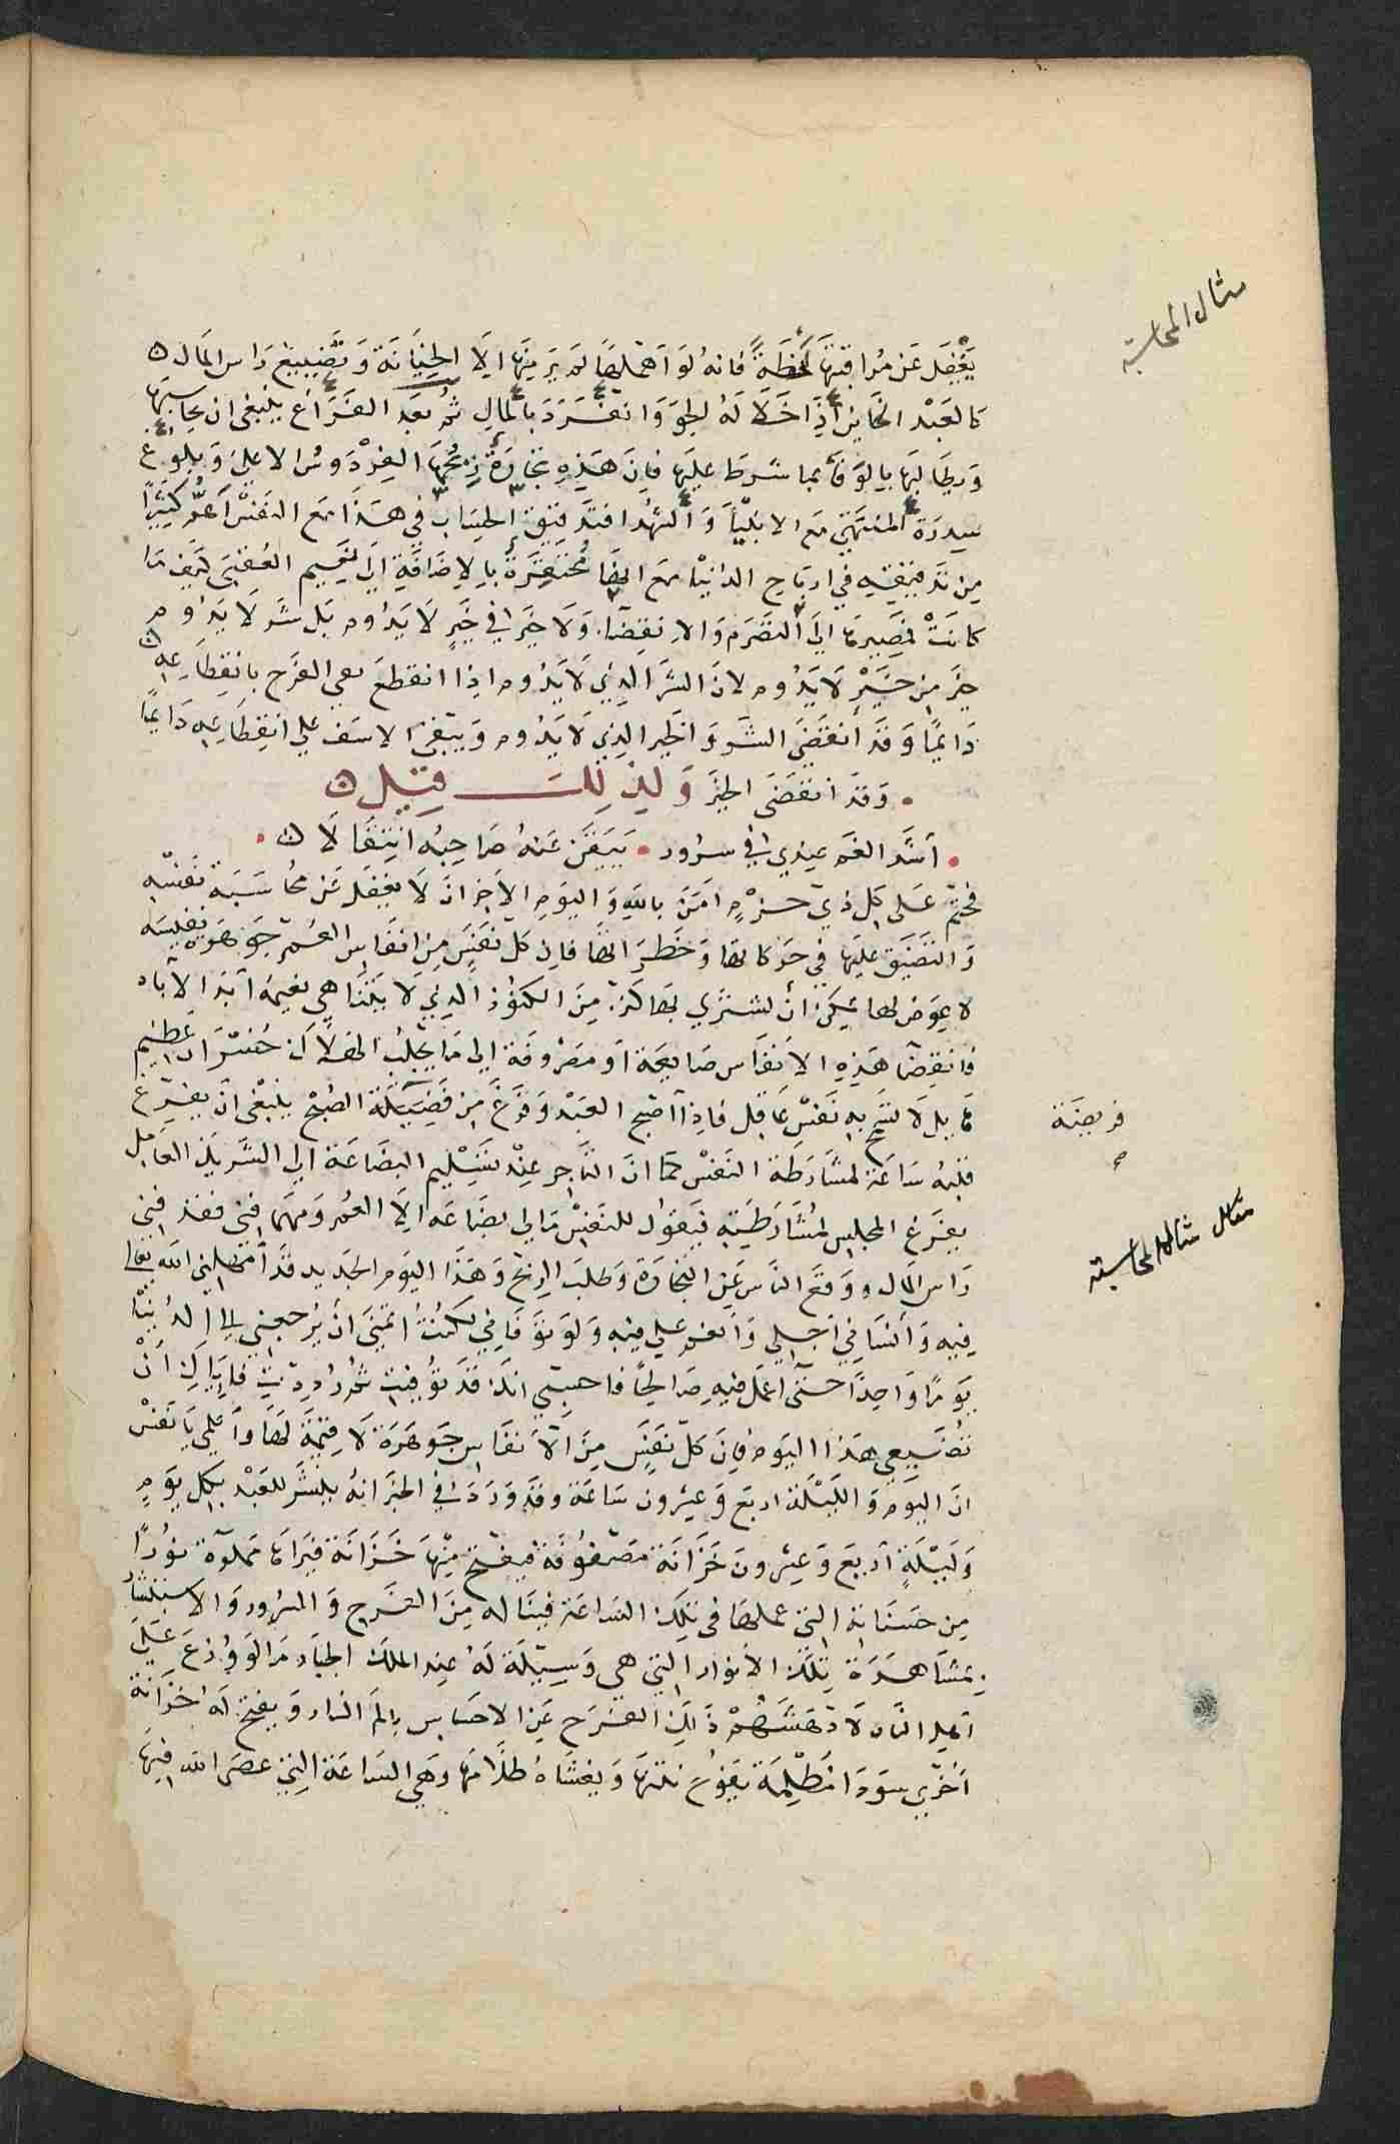 مثال المحاسبة
يغفل عن مراقبتها لحظة فانه لو اهملها لم ير منها الا الخيانة وتضييع راس المال ه
كالعبد الخاين اذا خلا له الجو وانفرد بالمال ثم بعد الفراغ ينبغي ان يحاسبها
ويطالبها بالوفا بما شرط عليها فان هذه تجارة ربحها الفردوس الاعلى وبلوغ
سدرة المنتهى مع الانبيا والشهدا فتدقيق الحساب في هذا مع النفس اهم كثيرا
من تدقيقه في ارباح الدنيا مع انها محتقرة بالاضافة الى نعيم العقبى كيف ما
كانت فمصيرها الى التصرم والانقضا. ولا خير في خير لا يدوم بل شر لا يدوم
خير من خير لا يدوم لان الشر الذي لا يدوم اذا انقطع بقي الفرح بانقطاعه
دايما وقد انقضى الشر والخير الذي لا يدوم ويبقى الاسف على انقطاعه دايما
وقد انقضى الخير ولذلك قيل ه
اشد الغم عندي في سرور • تيقن عنه صاحبه انتقالا ه
فحتم على كل ذي حزم امن بالله واليوم الاخر ان لا يغفل عن محاسبة نفسه
والتضيق عليها في حركاتها وخطراتها فان كل نفس من انفاس العمر جوهرة نفيسة
لا عوض لها يمكن ان تشتري بها كنز من الكنوز الذي لا يتناهي نعيمه ابد الاباد
فانقضا هذه الانفاس ضايعة او مصروفة الى ما يجلب الهلاك خسران عظيم
هايل لا تسمح به نفس عاقل فاذا اصبح العبد وفرغ من فضيلة الصبح ينبغي ان يفرغ
فريضة
صح
قلبه ساعة لمشارطة النفس كما ان التاجر عند تسليم البضاعة الى الشريك العامل
يفرغ المجلس لمشارطته فيقول للنفس مالي بضاعه الا العمر ومهما فني فقد فني
مثال المحاسبة
راس المال ووقع الياس عن التجارة وطلب الربح وهذا اليوم الجديد قد امهلني الله تعالى
فيه وانسا في اجلي وانعم علي فيه ولو توفاني لكنت اتمنى ان يرجعني الى الدنيا
يوما واحدا حتى اعمل فيه صالحا فاحسبي انك قد توفيت ثم رددت فاياك ان
تضيعي هذا اليوم فان كل نفس من الانفاس جوهرة لا قيمة لها واعلمي يا نفس
ان اليوم والليلة اربع وعشرون ساعة وقد ورد في الخبر انه ينشر للعبد بكل يوم
وليلة اربع وعشرون خزانة مصفوفة فيفتح منها خزانة فيراها مملوة نورا
من حسناته التي عملها في تلك الساعة فيناله من الفرح والسرور والاستبشار
بمشاهدة تلك الانوار التي هي وسيلة له عند الملك الجبار ما لو وزع على
اهل النار لادهشهم ذلك الفرح عن الاحساس بالم النار ويفتح له خزانة
اخري سودا مظلمة يفوح نتنها ويغشاه ظلامها وهي الساعة التي عصى الله فيها